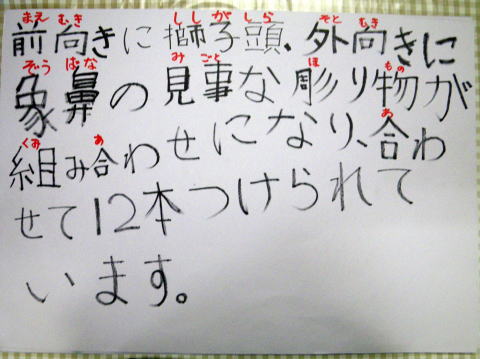 まえ むき ししがしら そと むき
前向きに獅子頭、外向きに
ぞう ばな み ごと ほ もの
象鼻の見事な彫り物が
くみ あ あ
組み合わせになり、合わ
せて12本つけられて
います。